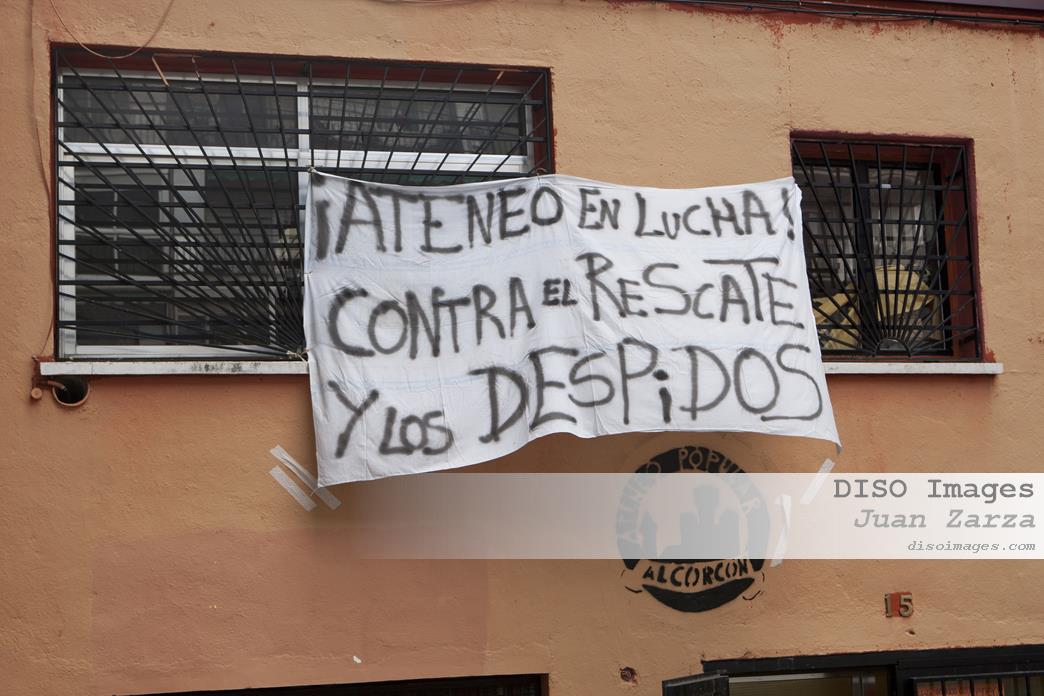 ¡ATENEO EN LUCHA!
CONTRA EL RESCATE
Y LOS DESPiDOS
ATENEO POPULAR
ALCORCÓN
DISO Images
Juan Zarza
disoimages.com
15